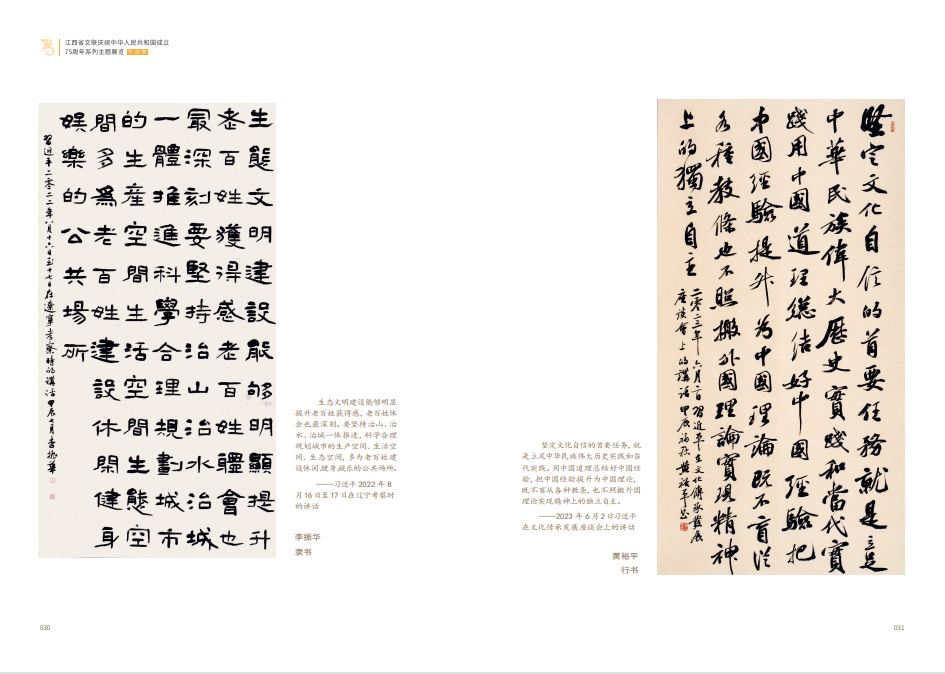 江西省文联庆祝中华人民共和国成立
75周年系列主题展览
生態文明建設能够明顯提升
老百姓獲得感老百姓體會也
最深刻要堅持治山治水治城
一體推進科學合理規劃城市
的生産空間生活空間生態空
間多爲老百姓建設休閑健身
娱樂的公共場所
習近平二零二二年八月十六日至十七日在遼寧考察時的講話 甲辰七月李振華
生态文明建设能够明显
提升老百姓获得感，老百姓体
会也最深刻。要坚持治山、治
水、治城一体推进，科学合理
规划城市的生产空间、生活空
间、生态空间，多为老百姓建
设休闲健身娱乐的公共场所。
——习近平 2022 年 8
月 16 日至 17 日在辽宁考察时
的讲话
李振华
隶书
030
坚定文化自信的首要任务，就
是立足中华民族伟大历史实践和当
代实践，用中国道理总结好中国经
验，把中国经验提升为中国理论，
既不盲从各种教条，也不照搬外国
理论实现精神上的独立自主。
——2023 年 6 月 2 日习近平
在文化传承发展座谈会上的讲话
黄裕平
行书
堅定文化自信的首要任務就是立足
中華民族偉大歷史實踐和當代實
踐用中國道理總結好中國經驗把
中國經驗提升為中國理論既不盲從
各種教條也不照搬外國理論實現精神
上的獨立自主
二零二三年六月二日習近平在文化傳承發展
座談會上的講話 甲辰 黄裕平書
031